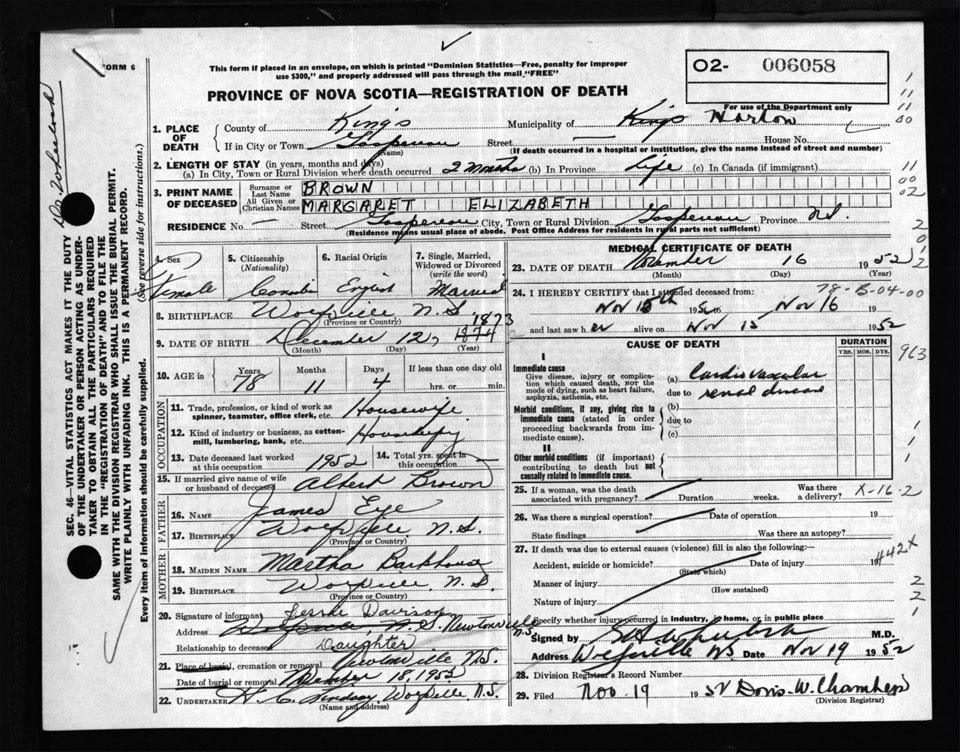 FORM 6
This form if placed in an envelope, on which is printed "Dominion Statistics—Free, penalty for improper
use $300," and properly addressed will pass through the mail "FREE"
O2- 006058
PROVINCE OF NOVA SCOTIA—REGISTRATION OF DEATH
For use of the Department only
1. PLACE OF DEATH County of Kings Municipality of Kings Horton
If in City or Town Gaspereau (Name) Street House No.
(If death occurred in a hospital or institution, give the name instead of street and number)
2. LENGTH OF STAY (in years, months and days)
(a) In City, Town or Rural Division where death occurred 2 months (b) In Province life (c) In Canada (if immigrant)
3. PRINT NAME OF DECEASED Surname or Last Name BROWN
All Given or Christian Names MARGARET ELIZABETH
RESIDENCE No. Street Gaspereau City, Town or Rural Division Gaspereau Province N.S.
(Residence means usual place of abode. Post Office Address for residents in rural parts not sufficient)
4. Sex Female
5. Citizenship (Nationality)
6. Racial Origin English
7. Single, Married, Widowed or Divorced (write the word) Married
8. BIRTHPLACE Wolfville N.S. (Province or Country)
9. DATE OF BIRTH December 12, 1874 1873
(Month) (Day) (Year)
10. AGE in Years 78 Months 11 Days 4 If less than one day old hrs. or min.
OCCUPATION
11. Trade, profession, or kind of work as spinner, teamster, office clerk, etc. Housewife
12. Kind of industry or business, as cotton-mill, lumbering, bank, etc.
13. Date deceased last worked at this occupation 1952 14. Total yrs. spent in this occupation
15. If married give name of wife or husband of deceased Albert Brown
FATHER
16. NAME James Eye
17. BIRTHPLACE Wolfville N.S.
(Province or Country)
MOTHER
18. MAIDEN NAME Martha Barkhouse
19. BIRTHPLACE Wolfville N.S.
(Province or Country)
20. Signature of informant Davison
Address N.S. Newtonville N.S.
Relationship to deceased Daughter
21. Place of burial, cremation or removal Newtonville N.S.
Date of burial or removal November 18, 1952
22. UNDERTAKER H. C. Lindsay Wolfville N.S.
(Name and address)
MEDICAL CERTIFICATE OF DEATH
23. DATE OF DEATH November 16 1952
(Month) (Day) (Year)
78-B-04-00
24. I HEREBY CERTIFY that I attended deceased from:
Nov 15th 19 to Nov 16 19
and last saw h er alive on Nov 15 1952
CAUSE OF DEATH DURATION
YRS. MOS. DYS.
963
I
Immediate cause
Give disease, injury or complication which caused death, NOT the mode of dying, such as heart failure, asphyxia, asthenia, etc.
(a) Cardio vascular
due to renal disease
Morbid conditions, if any, giving rise to immediate cause (stated in order proceeding backwards from immediate cause).
(b)
due to
(c)
II
Other morbid conditions (if important) contributing to death but not causally related to immediate cause.
25. If a woman, was the death associated with pregnancy? Duration weeks. Was there a delivery? X-16-2
26. Was there a surgical operation? Date of operation 19
State findings Was there an autopsy?
27. If death was due to external causes (violence) fill in also the following:—
Accident, suicide or homicide? Date of injury 19
442x
(State which)
Manner of injury
(How sustained)
Nature of injury
Specify whether injury occurred in industry, home, or in public place
Signed by M.D.
Address Wolfville NS Date Nov 19 1952
28. Division Registrar's Record Number
29. Filed Nov. 19 1952 Doris W. Chambers
(Division Registrar)
SEC. 46—VITAL STATISTICS ACT MAKES IT THE DUTY
OF THE UNDERTAKER OR PERSON ACTING AS UNDERTAKER TO OBTAIN ALL THE PARTICULARS REQUIRED
IN THE "REGISTRATION OF DEATH" AND TO FILE THE
SAME WITH THE DIVISION REGISTRAR WHO SHALL ISSUE THE BURIAL PERMIT.
WRITE PLAINLY WITH UNFADING INK. THIS IS A PERMANENT RECORD.
Every item of information should be carefully supplied. (See reverse side for instructions.)